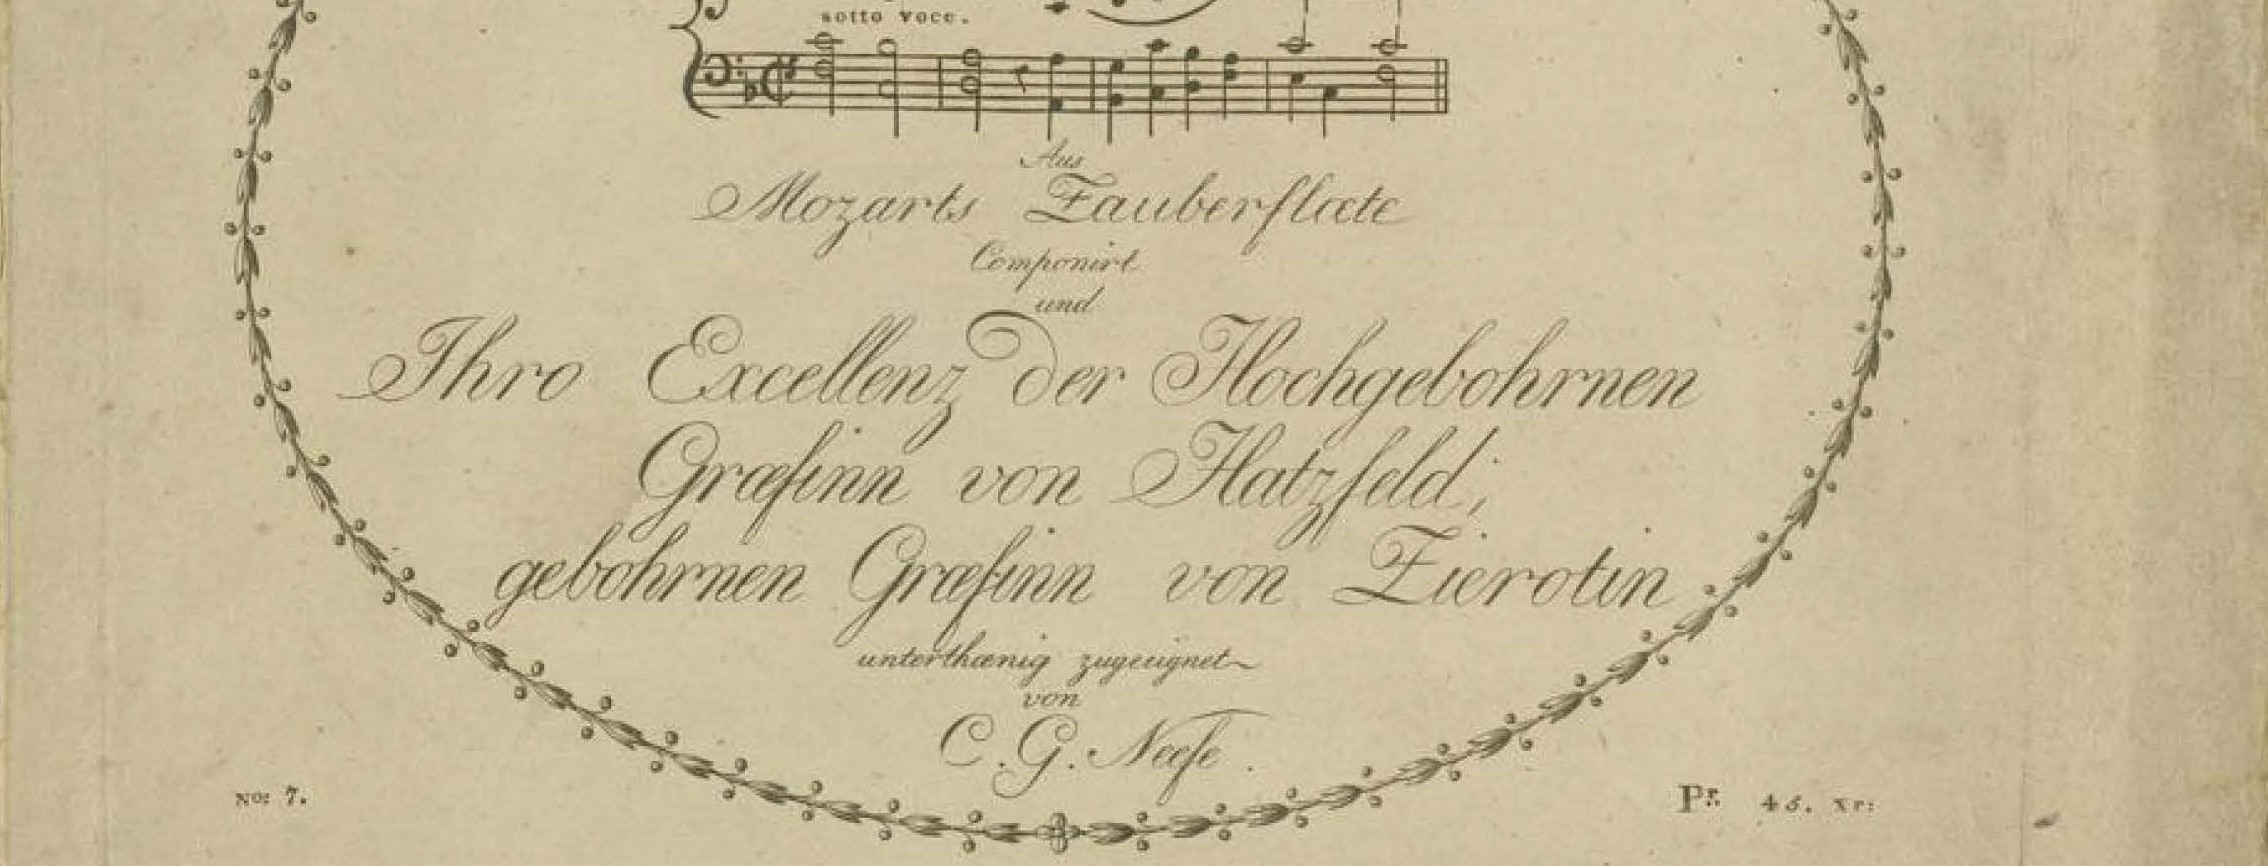 sotto voce.
Aus
Mozarts Zauberflœte
Componirt
und
Ihro Excellenz der Hochgebohrnen
Græfinn von Hatzfeld,
gebohrnen Græfinn von Zierotin
unterthœnig zugeeignet
von
C. G. Neefe.
No: 7.
Pr. 45. xr: